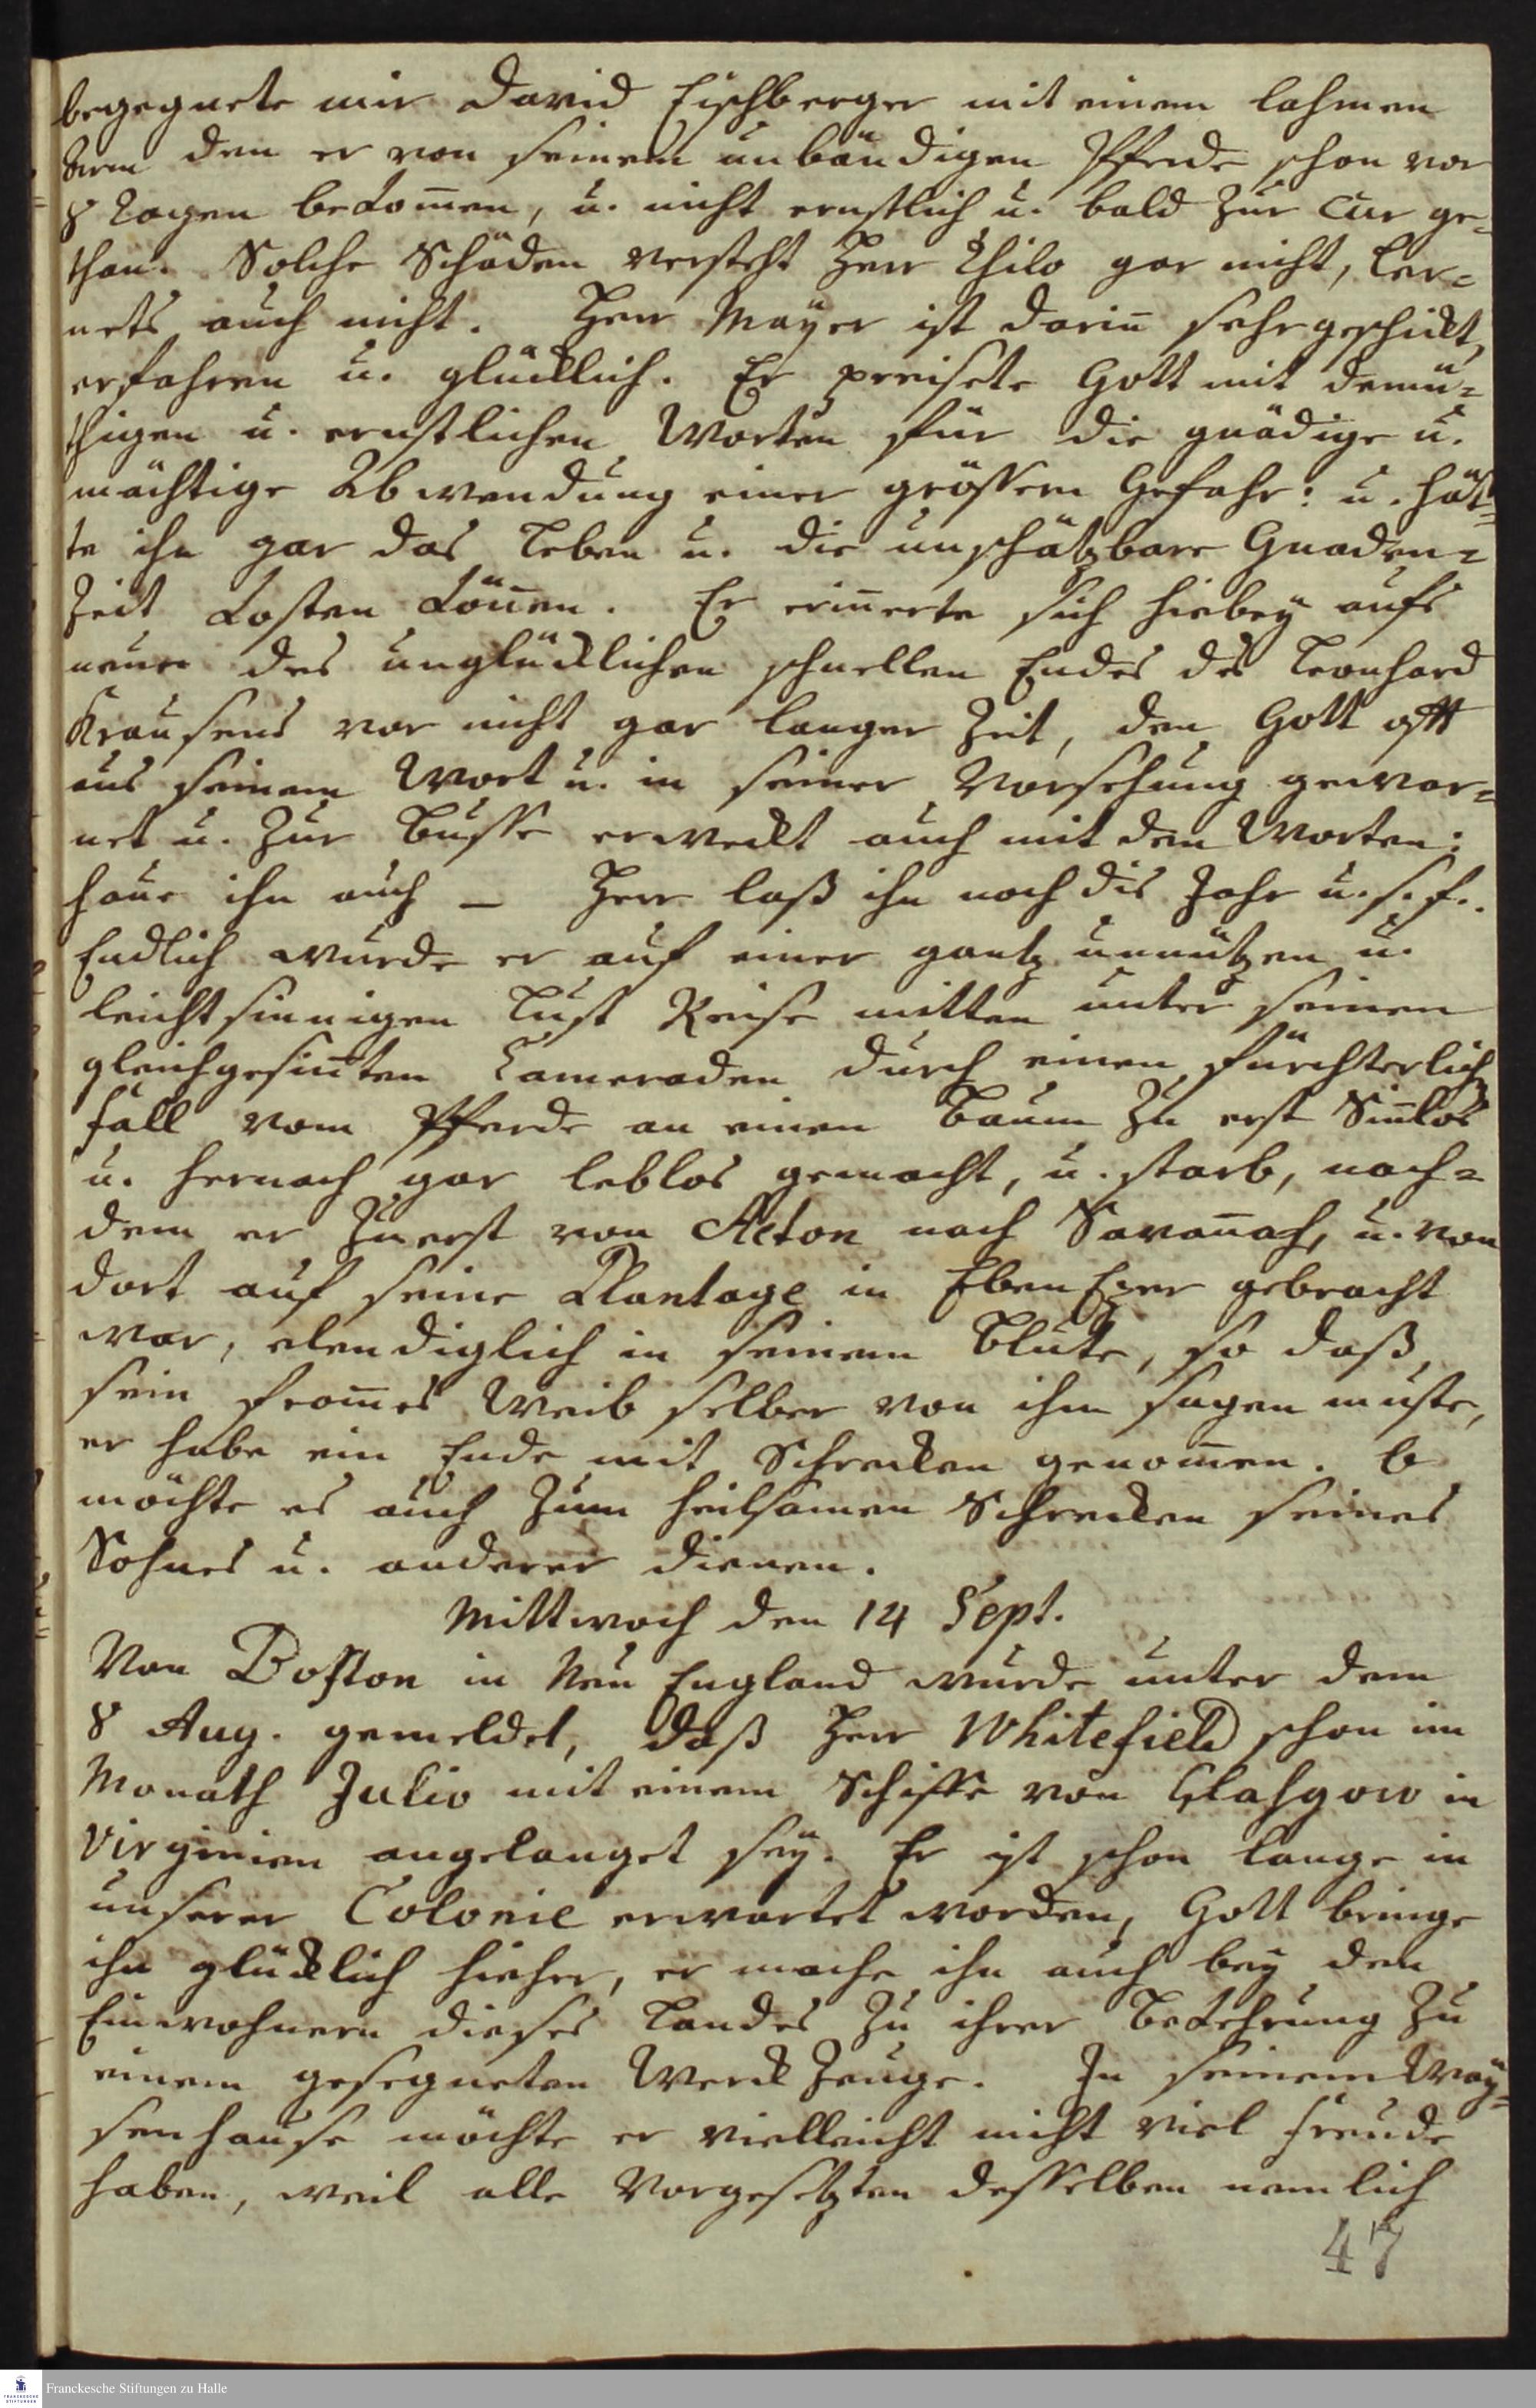 begegnete mir David Eischberger mit einem lahmen
Arm den er von seinem unbändigen Pferde schon vor
8 Tagen bekom̅en, u. nicht ernstlich u. bald zur Cur ge-
than. Solche Schäden versteht Herr Thilo gar nicht, ler-
nets auch nicht. Herr Mayer ist darin̅ sehr geschickt,
erfahren u. glücklich. Er preisete Gott mit demü-
thigen u. ernstlichen Worten für die gnädige u.
mächtige Abwendung einer grössern Gefahr: u. hät-
te ihn gar das Leben u. die unschätzbare Gnaden-
Zeit kosten kön̅en. Er erin̅erte sich hiebey aufs
neue des unglücklichen schnellen Endes des Leonhard
Krausens vor nicht gar langer Zeit, den Gott offt
aus seinem Wort u. in seiner Vorsehung gewar-
net u. zur Busse erweckt auch mit den Worten:
haue ihn auch — Herr laß ihn noch dis Jahr u. s. f..
Endlich wurde er auf einer gantz unnützen u.
leichtsinnigen Lust Reise mitten unter seinen
gleichgesin̅ten Cameraden durch einen fürchterlich
Fall vom Pferde an einen Baum zu erst Sin̅los
u. hernach gar leblos gemacht, u. starb, nach-
dem er zuerst von Acton nach Savan̅ah, u. von
dort auf seine Plantage in EbenEzer gebracht
war, elendiglich in seinem Blute, so daß,
sein from̅es Weib selber von ihm sagen muste,
er habe ein Ende mit Schrecken genom̅en. O
möchte es auch zum heilsamen Schrecken seines
Sohnes u. anderer dienen.
Mittwoch den 14 Sept.
Von Boston in Neu England wurde unter dem
8 Aug. gemeldet, daß Herr Whitefield schon im
Monath Julio mit einem Schiffe von Glasgow in
Virginien angelanget sey. Er ist schon lange in
unserer Colonie erwartet worden, Gott bringe
ihn glücklich hieher, er mache ihn auch bey den
Einwohnern dieses Landes zu ihrer Bekehrung zu
einem gesegneten Werck Zeuge. In seinem Way-
senhause möchte er vielleicht nicht viel Freude
haben, weil alle Vorgesetzten desselben nemlich
47
FRANCKESCHE
STIFTUNGEN
Franckesche Stiftungen zu Halle